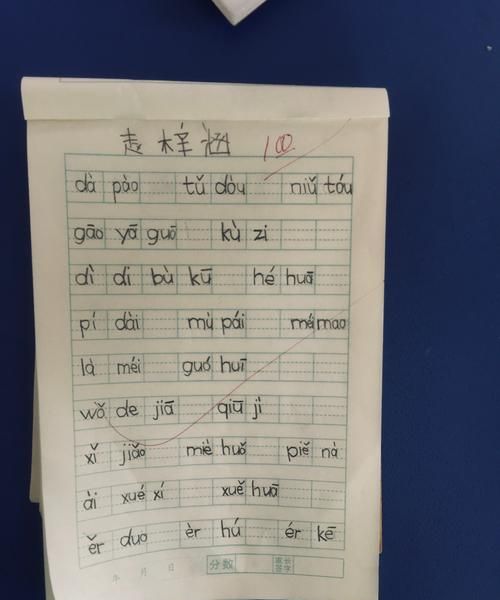 赵梓涵 100
dà pào tǔ dòu niǔ tóu
gāo yā guō kù zi
dì di bù kū hé huā
pí dài mù pái máo mao
là méi guó huī
wǒ de jiā qiū jì
xǐ jiǎo miè huǒ piě nà
ài xué xí xuě huā
ěr duo èr hú ér kē
年 月 日 分数 家长签字